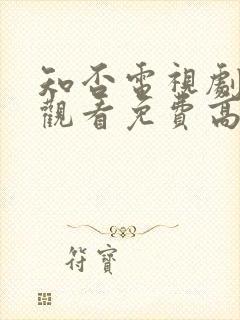 知否電視劇
觀看免費高
符寶